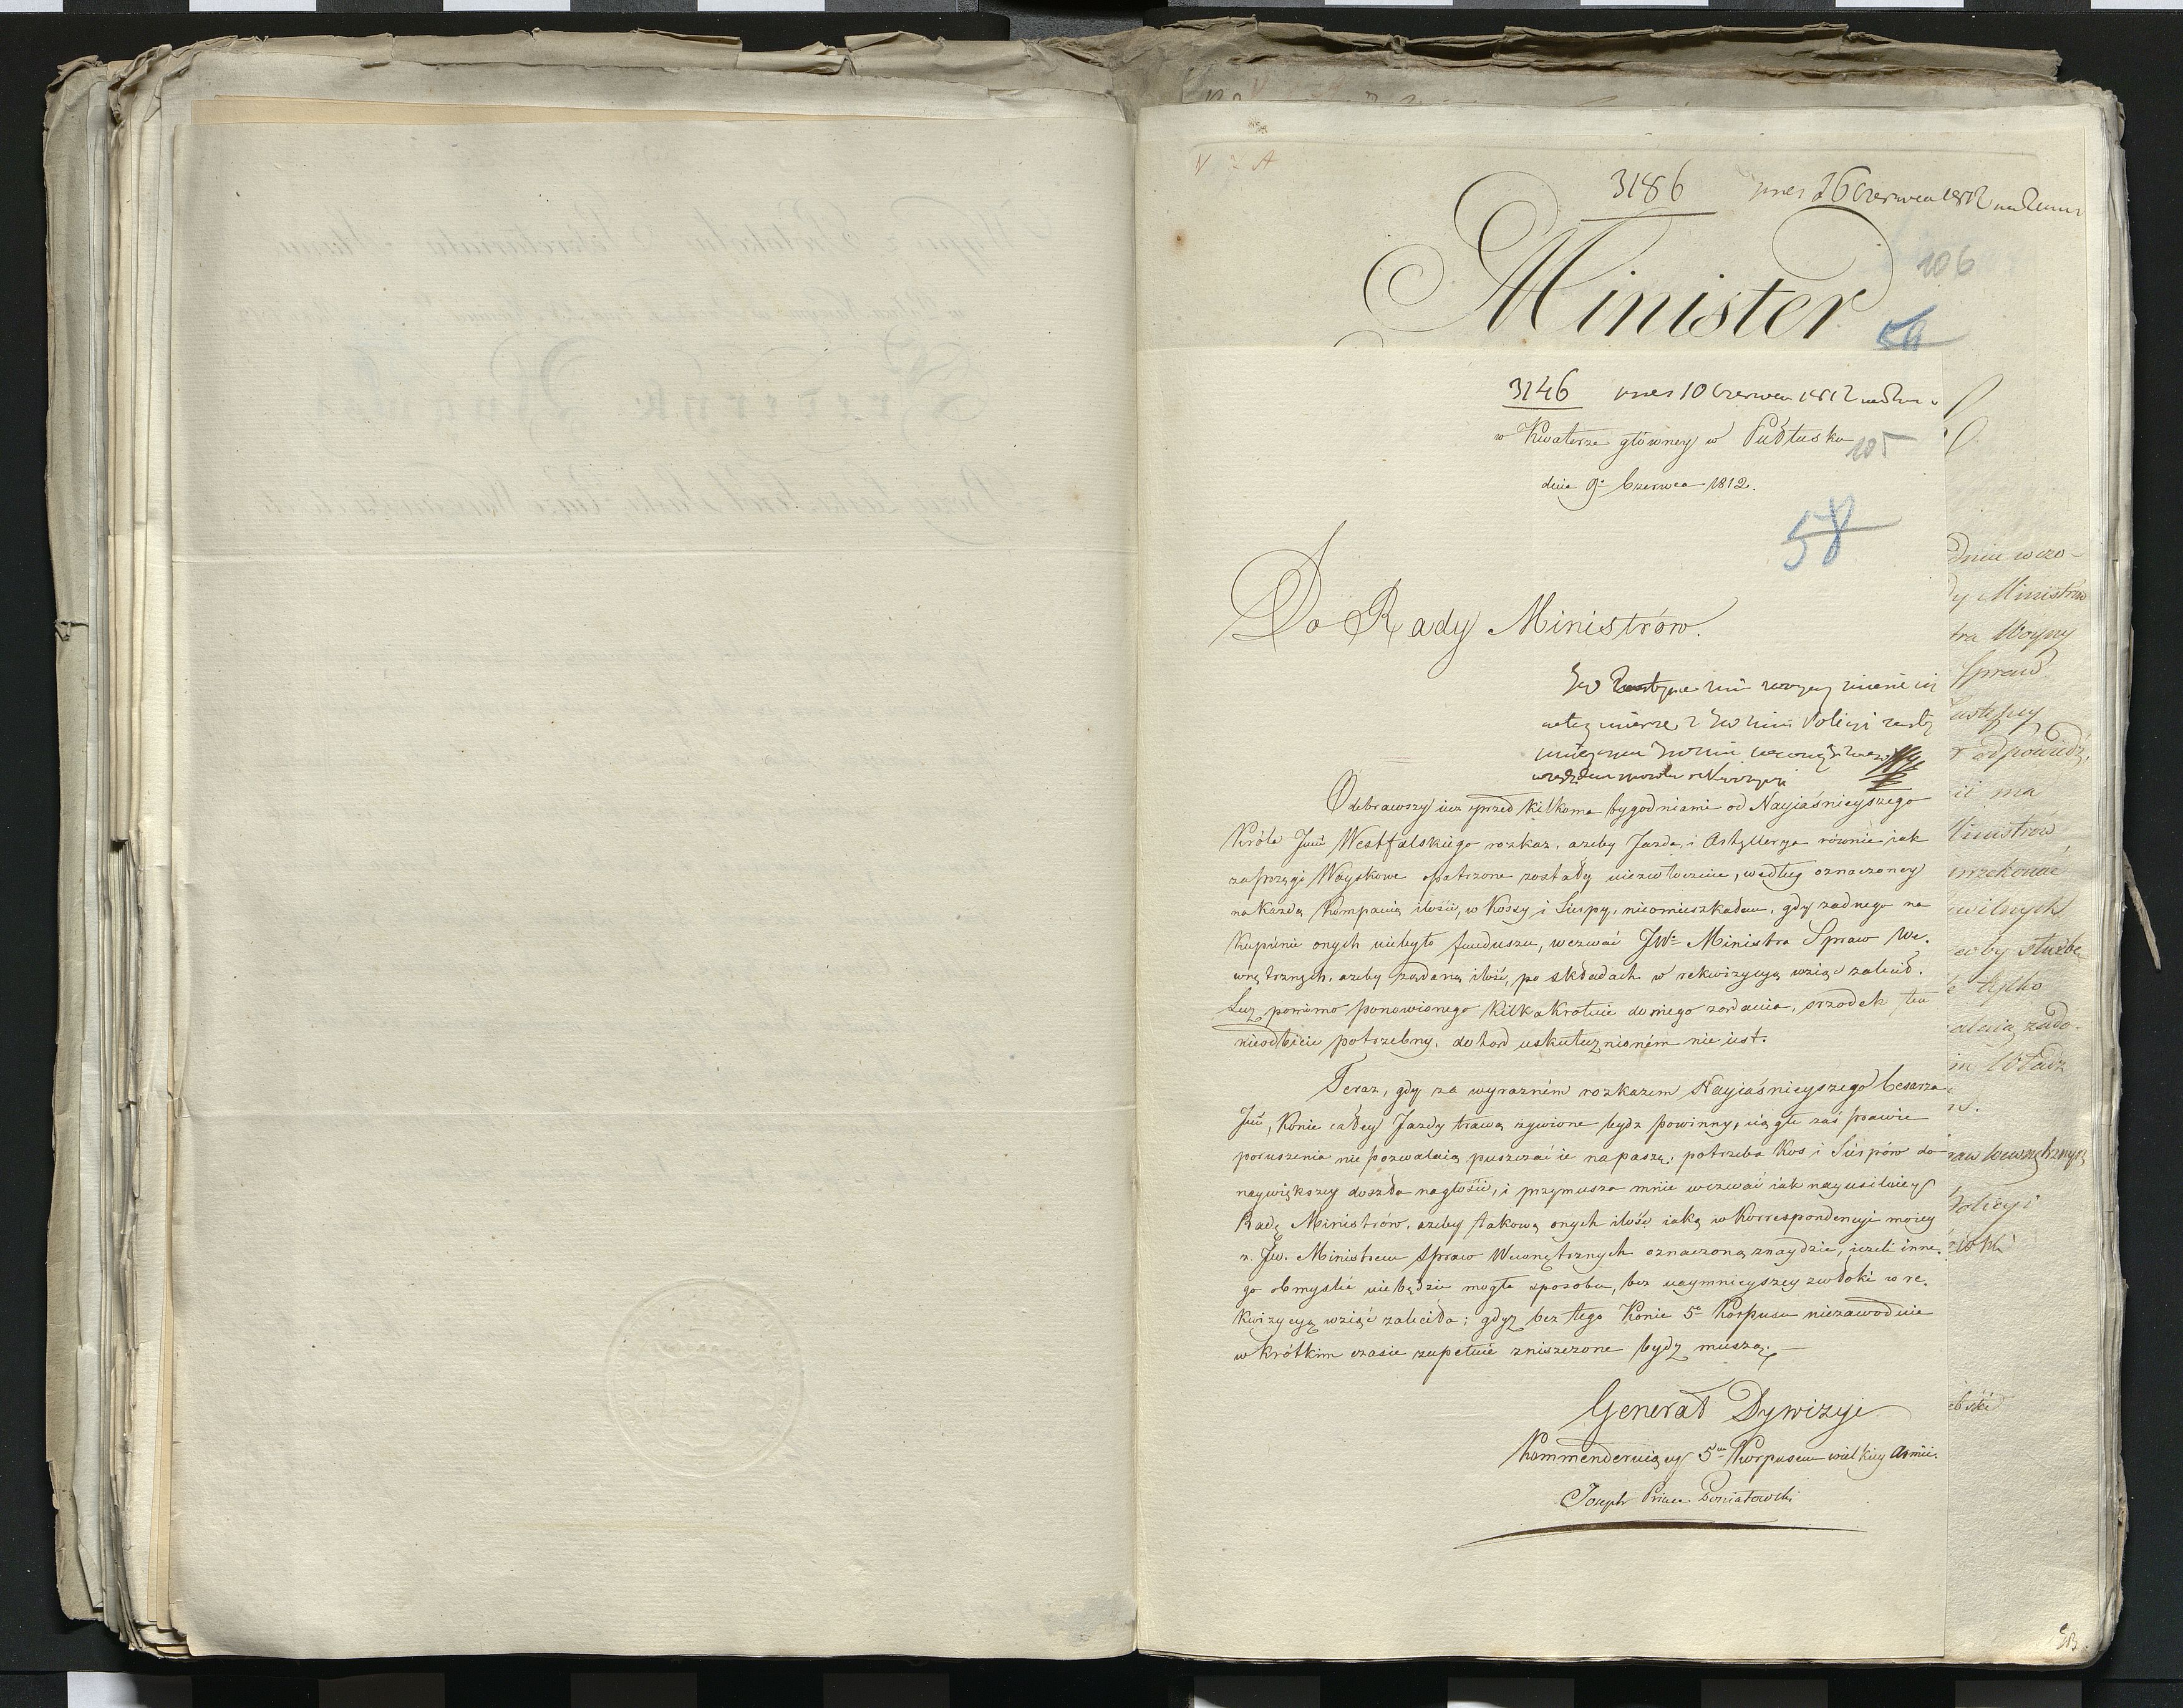 3186 16 Czerwca 1812
106
Minister
56
3146 10 Czerwca 1812
w Kwaterze główney w Pułtusku
105
dnia 9o Czerwca 1812.
58
Do Rady Ministrów.
Odebrawszy iuz przed kilkoma tygodniami od Nayiaśnieyszego
Króla Jmci Westfalskiego rozkaz, azeby Jazda, i Artyllerya równie iak
zaprzęgi Woyskowe opatrzone zostały niezwłocznie, według oznaczoney
na każdą Kompanią ilości, w Kossy i Sierpy, nieomieszkałem, gdy żadnego na
Kupienie onych niebyło funduszu, wezwać JWo Ministra Spraw We-
wnętrznych, azeby żądaną ilość, po składach w rekwizycyą wziąć zalecił.
Lecz pomimo ponowionego kilkakrotnie do niego żądania, srzodek ten
nieodbicie potrzebny, dotąd uskutecznionem nie iest.
Teraz, gdy za wyraznem rozkazem Nayiaśnieyszego Cesarza
Jmci, Konie całey Jazdy trawą żywione bydz powinny, ciągłe zaś prawie
poruszenia nie pozwalaią puszczać ie na paszę, potrzeba Kos i Sierpów do
naywiększey doszła nagłości, i przymusza mnie wezwać iak nayusilniey
Radę Ministrów, azeby takową onych ilość iaką w Korrespondencyi moiey
z Jw. Ministrem Spraw Wewnętrznych oznaczoną znaydzie, ieżeli inne-
go obmyślić niebędzie mogła sposobu, bez naymnieyszey zwłoki w re-
kwizycyą wziąć zaleciła; gdyz bez tego Konie 5o Korpusu niezawodnie
w krótkim czasie zupełnie zniszczone bydz muszą.
Generał Dywizyi
Kommenderuiący 5m Korpusem wielkiey Armii.
Joseph Prince Poniatowski
dnie wczo-
dy Ministrów
tra Woyny
Spraw
odpowiedź,
ii ma
Ministrów
przekonać
wilnych
by służbę
tylko
Władz
raw Wewnętrznych
Policyi